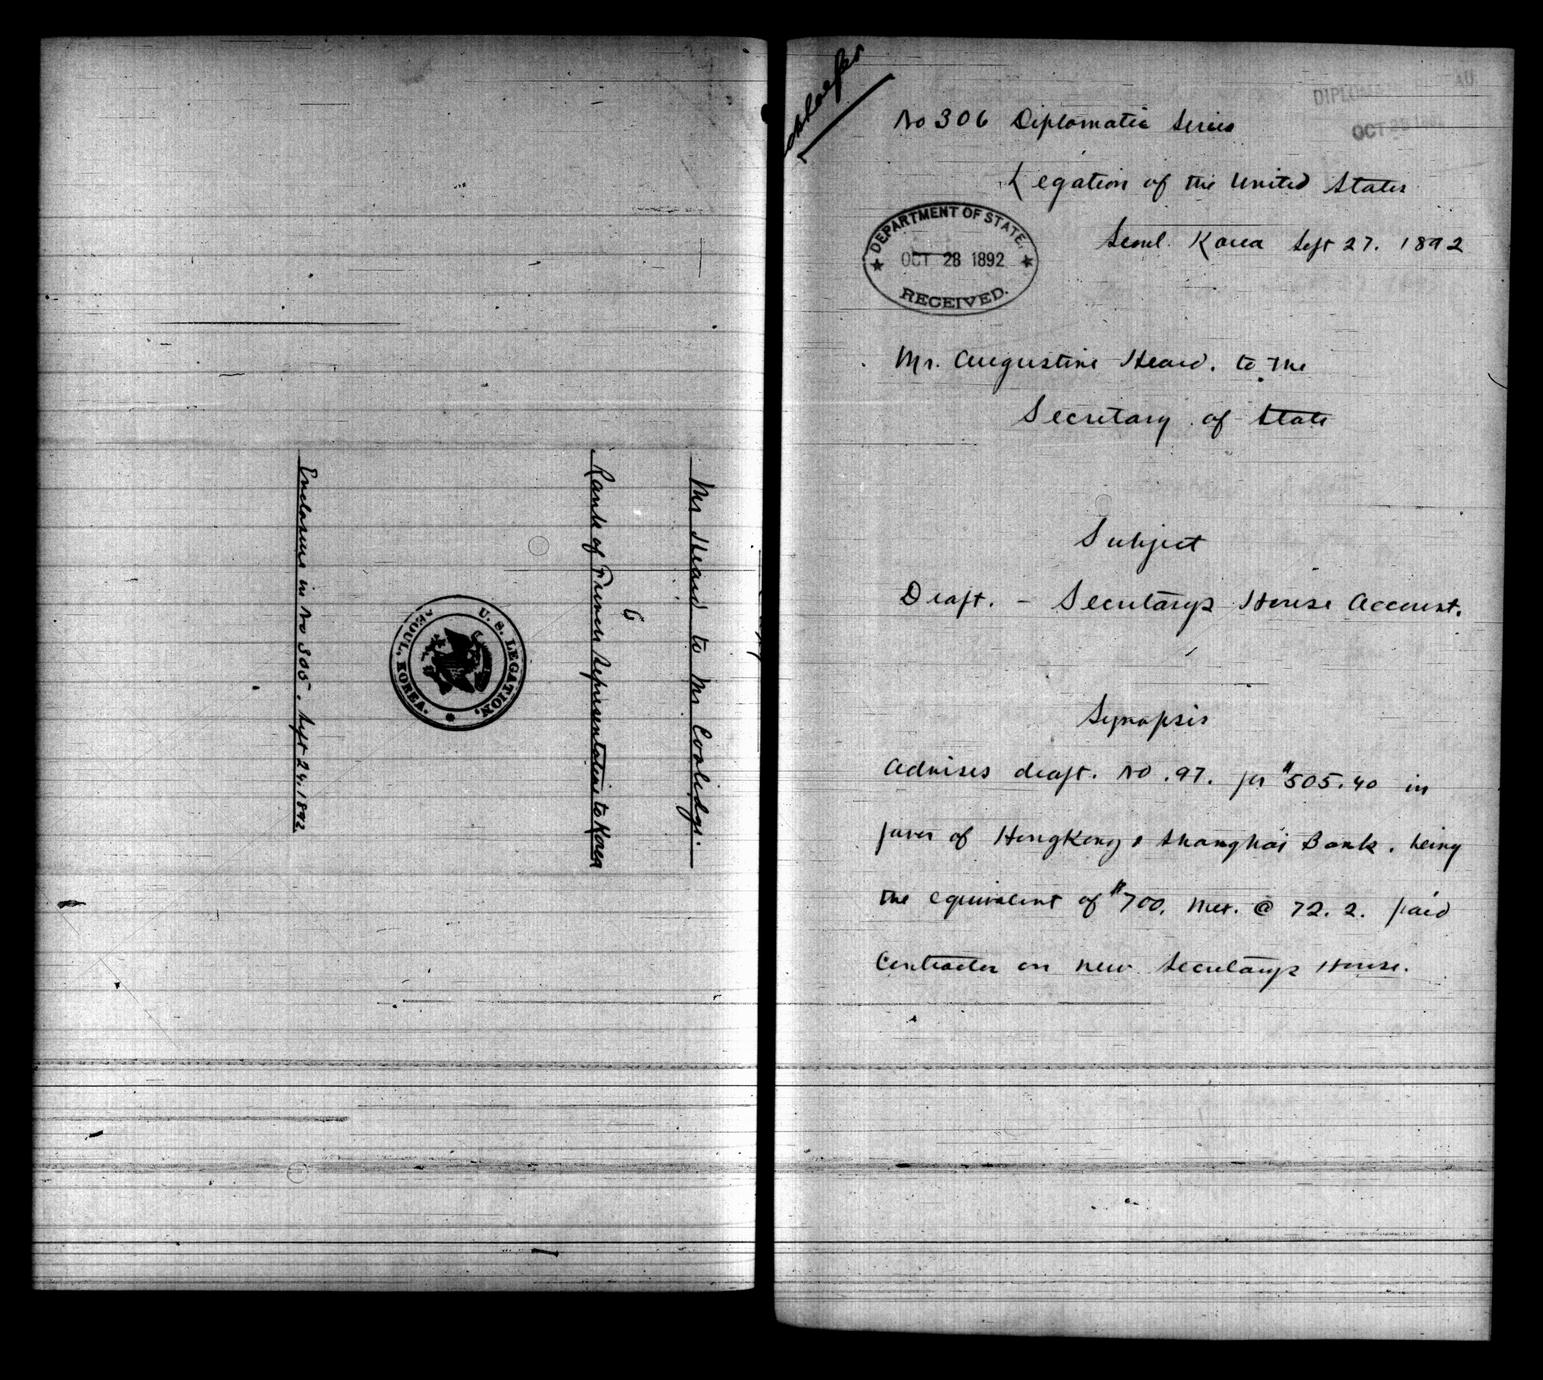 Mr Heard to Mr Coolidge.
6
Rank of French Representative to Korea
U. S. LEGATION,
SEOUL, KOREA.
Enclosure in No 305. Sept 24. 1892
No 306 Diplomatic Series
DIPLOMATIC
OCT 28 1892
Legation of the United States
Seoul. Korea Sept 27. 1892
DEPARTMENT OF STATE,
OCT 28 1892
RECEIVED.
Mr. Augustine Heard. to the
Secretary of State
Subject
Draft. - Secretary's House Account.
Synopsis
Advises draft. No. 97. for $505.40 in
favor of HongKong & Shanghai Bank. being
the equivalent of $700. Mex. @ 72.2. paid
Contractor on new Secretary's House.